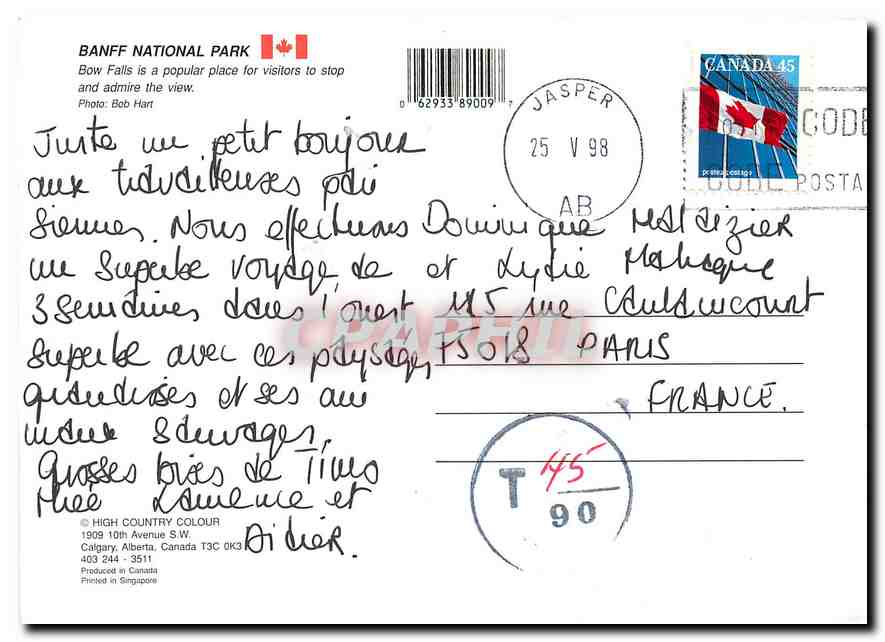 BANFF NATIONAL PARK
Bow Falls is a popular place for visitors to stop
and admire the view.
Photo: Bob Hart
0 62933 89009 7
JASPER
25 V 98
AB
CANADA 45
postes postage
CODE
CODE POSTA
Juste un petit bonjour
aux travailleuses pari
siennes. Nous effectuons
un superbe voyage de
3 semaines dans l'ouest
superbe avec ces paysages
grandioses et ses ani
maux sauvages.
Grosses bises de Timo
thée Laurence et
Didier.
Dominique
et Lydie
115 rue Caulaincourt
75018 PARIS
FRANCE.
T 45
90
CPAPHIL
© HIGH COUNTRY COLOUR
1909 10th Avenue S.W.
Calgary, Alberta, Canada T3C 0K3
403 244 - 3511
Produced in Canada
Printed in Singapore